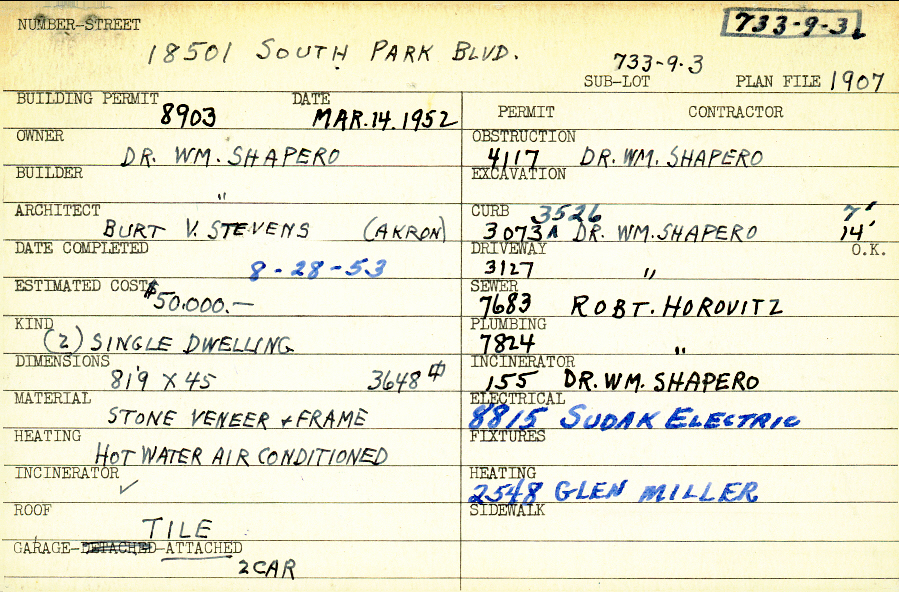 NUMBER-STREET
733-9-3
18501 SOUTH PARK BLVD.
733-9-3
SUB-LOT PLAN FILE 1907
BUILDING PERMIT 8903 DATE MAR.14.1952
OWNER
DR. WM. SHAPERO
BUILDER
"
ARCHITECT
BURT V. STEVENS (AKRON)
DATE COMPLETED
8-28-53
ESTIMATED COST
$50.000.—
KIND
(2) SINGLE DWELLING
DIMENSIONS
81'9 X 45 3648
MATERIAL
STONE VENEER + FRAME
HEATING
HOT WATER AIR CONDITIONED
INCINERATOR
✓
ROOF
TILE
GARAGE-DETACHED-ATTACHED
2 CAR
PERMIT CONTRACTOR
OBSTRUCTION
4117 DR. WM. SHAPERO
EXCAVATION
CURB 3526 7'
3073A DR. WM. SHAPERO 14'
DRIVEWAY O.K.
3127 "
SEWER
7683 ROBT. HOROVITZ
PLUMBING
7824 "
INCINERATOR
155 DR. WM. SHAPERO
ELECTRICAL
8815 SUDAK ELECTRIC
FIXTURES
HEATING
2548 GLEN MILLER
SIDEWALK